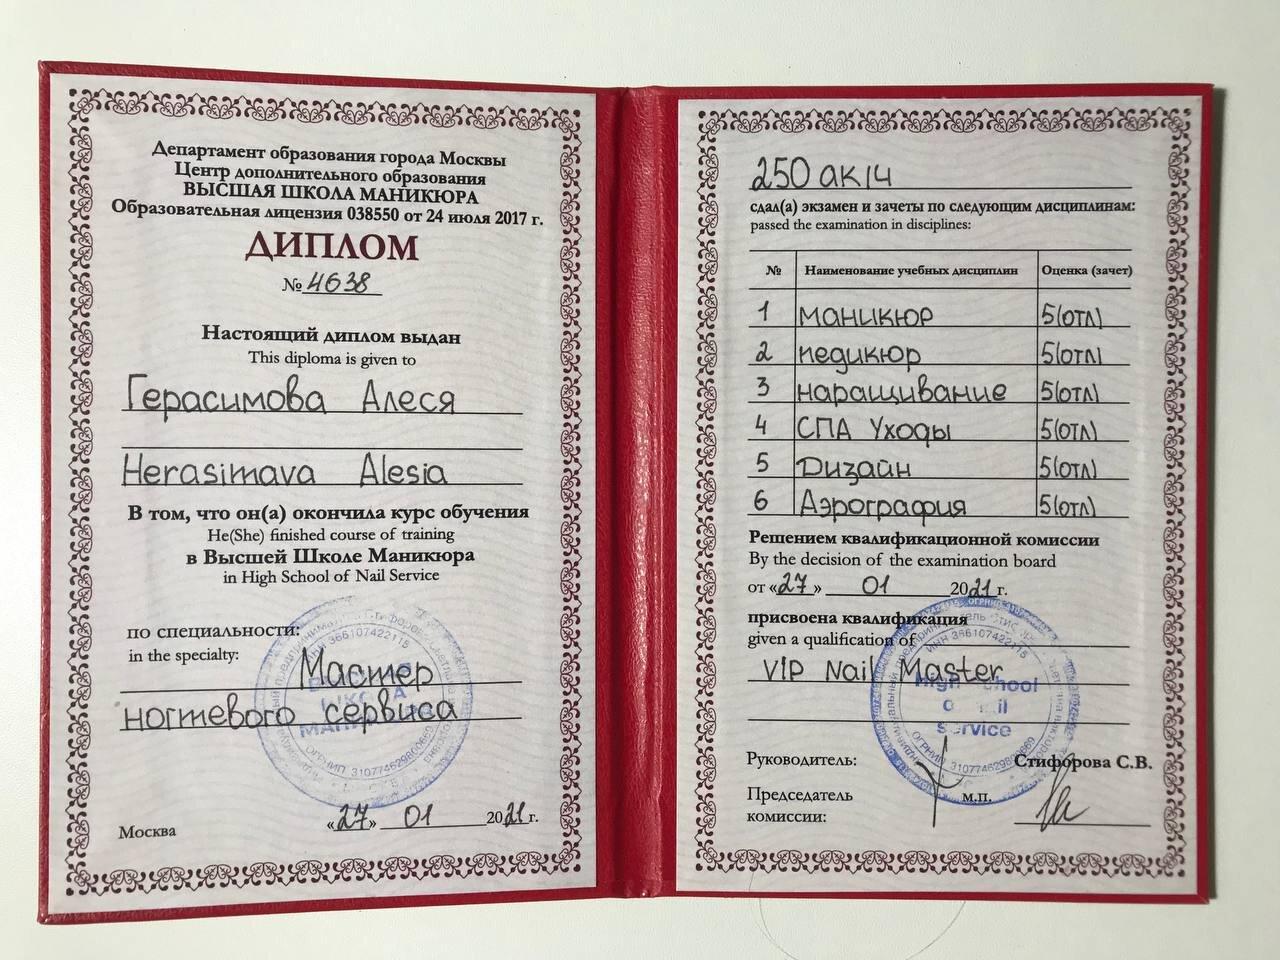 Департамент образования города Москвы
Центр дополнительного образования
ВЫСШАЯ ШКОЛА МАНИКЮРА
Образовательная лицензия 038550 от 24 июля 2017 г.
ДИПЛОМ
№ 4638
Настоящий диплом выдан
This diploma is given to
Герасимова Алеся
Herasimava Alesia
В том, что он(а) окончила курс обучения
He(She) finished course of training
в Высшей Школе Маникюра
in High School of Nail Service
по специальности:
in the specialty:
Мастер
ногтевого сервиса
«27» 01 2021 г.
Москва
250 ак/ч
сдал(а) экзамен и зачеты по следующим дисциплинам:
passed the examination in disciplines:
№ Наименование учебных дисциплин Оценка (зачет)
1 маникюр 5(отл)
2 педикюр 5(отл)
3 наращивание 5(отл)
4 СПА Уходы 5(отл)
5 Дизайн 5(отл)
6 Аэрография 5(отл)
Решением квалификационной комиссии
By the decision of the examination board
от «27» 01 2021 г.
присвоена квалификация
given a qualification of
VIP Nail Master
High School
nail
service
ИНН 366107422115
ОГРНИП 310774629800669
Руководитель: Стифорова С.В.
Председатель м.п.
комиссии: